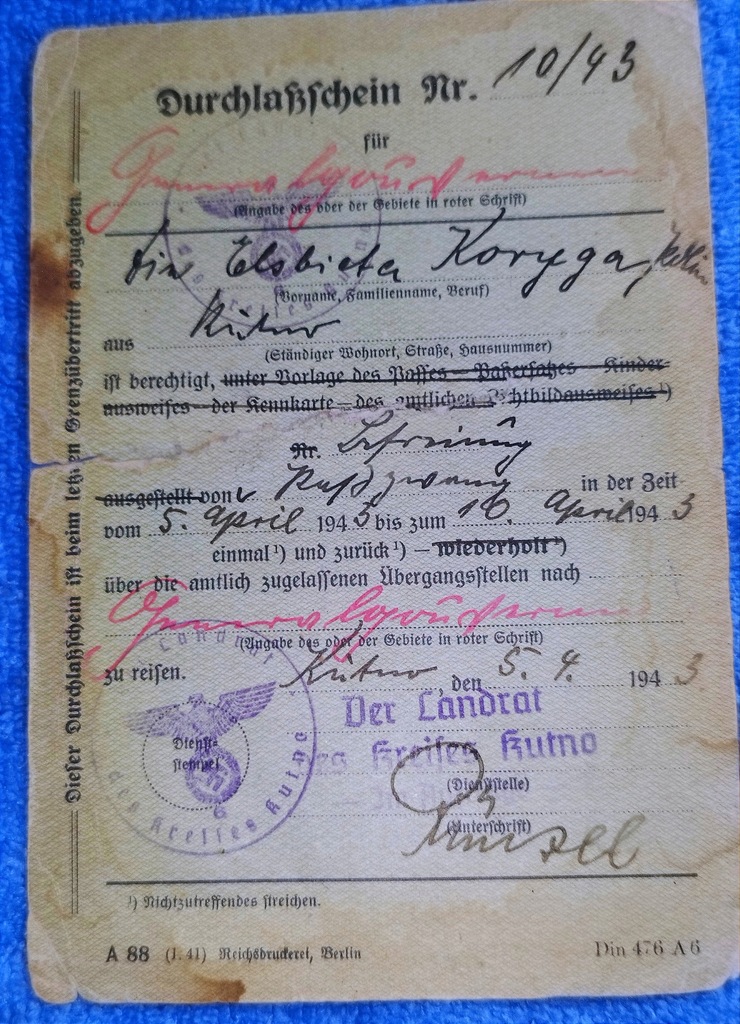 Durchlaßschein Nr. 10/43
für
Generalgouvernement
(Angabe des oder der Gebiete in roter Schrift)
Elsbieta Koryga,
(Vorname, Familienname, Beruf)
aus Kutno
(Ständiger Wohnort, Straße, Hausnummer)
ist berechtigt, unter Vorlage des Passes – Paßersatzes – Kinder-
ausweises – der Kennkarte – des amtlichen Lichtbildausweises ¹)
Nr. Befreiung
ausgestellt von v. Paßzwang in der Zeit
vom 5. April 1943 bis zum 10. April 1943
einmal ¹) und zurück ¹) – wiederholt ¹)
über die amtlich zugelassenen Übergangsstellen nach
Generalgouvernement
(Angabe des oder der Gebiete in roter Schrift)
zu reisen. Kutno, den 5. 4. 1943
Der Landrat
des Kreises Kutno
(Dienststelle)
(Unterschrift)
Dienst-
stempel
Landrat
des Kreises Kutno
6
¹) Nichtzutreffendes streichen.
A 88 (I. 41) Reichsdruckerei, Berlin Din 476 A 6
Dieser Durchlaßschein ist beim letzten Grenzübertritt abzugeben.